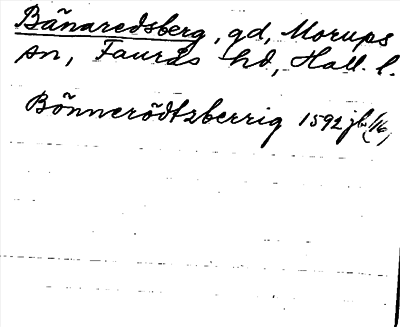 Bänaredsberg, gd, Morups
sn, Faurås hd, Hall. l.
Bönnerödtzberrig 1592 jb (16)